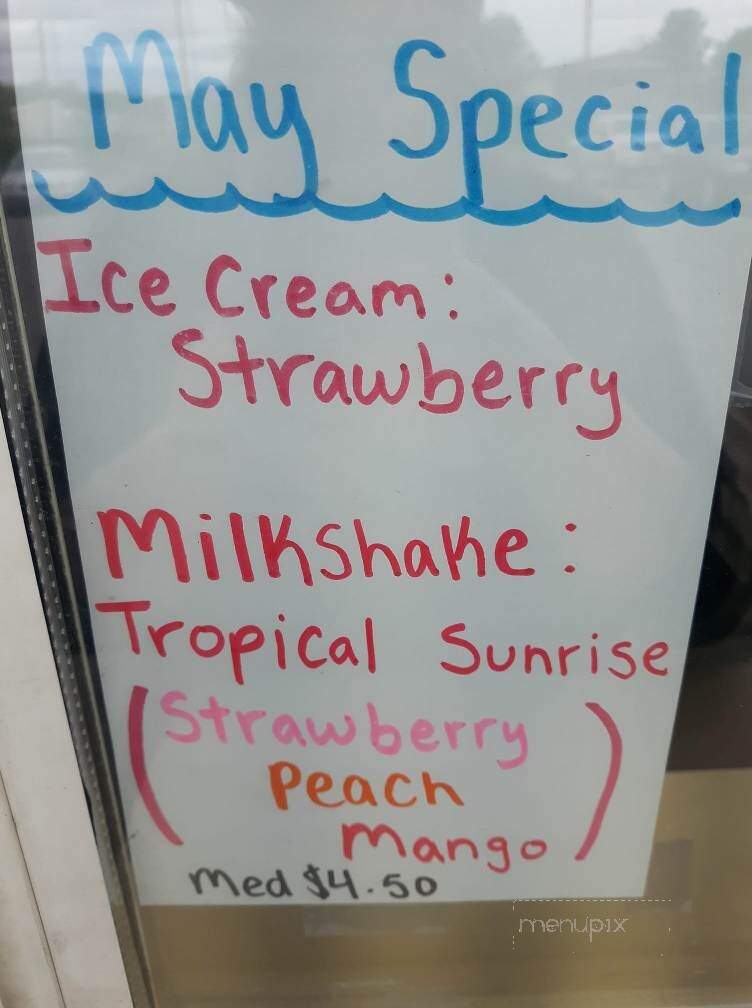 May Special
Ice Cream:
Strawberry
Milkshake:
Tropical Sunrise
(Strawberry
Peach
Mango)
Med $4.50
menupix